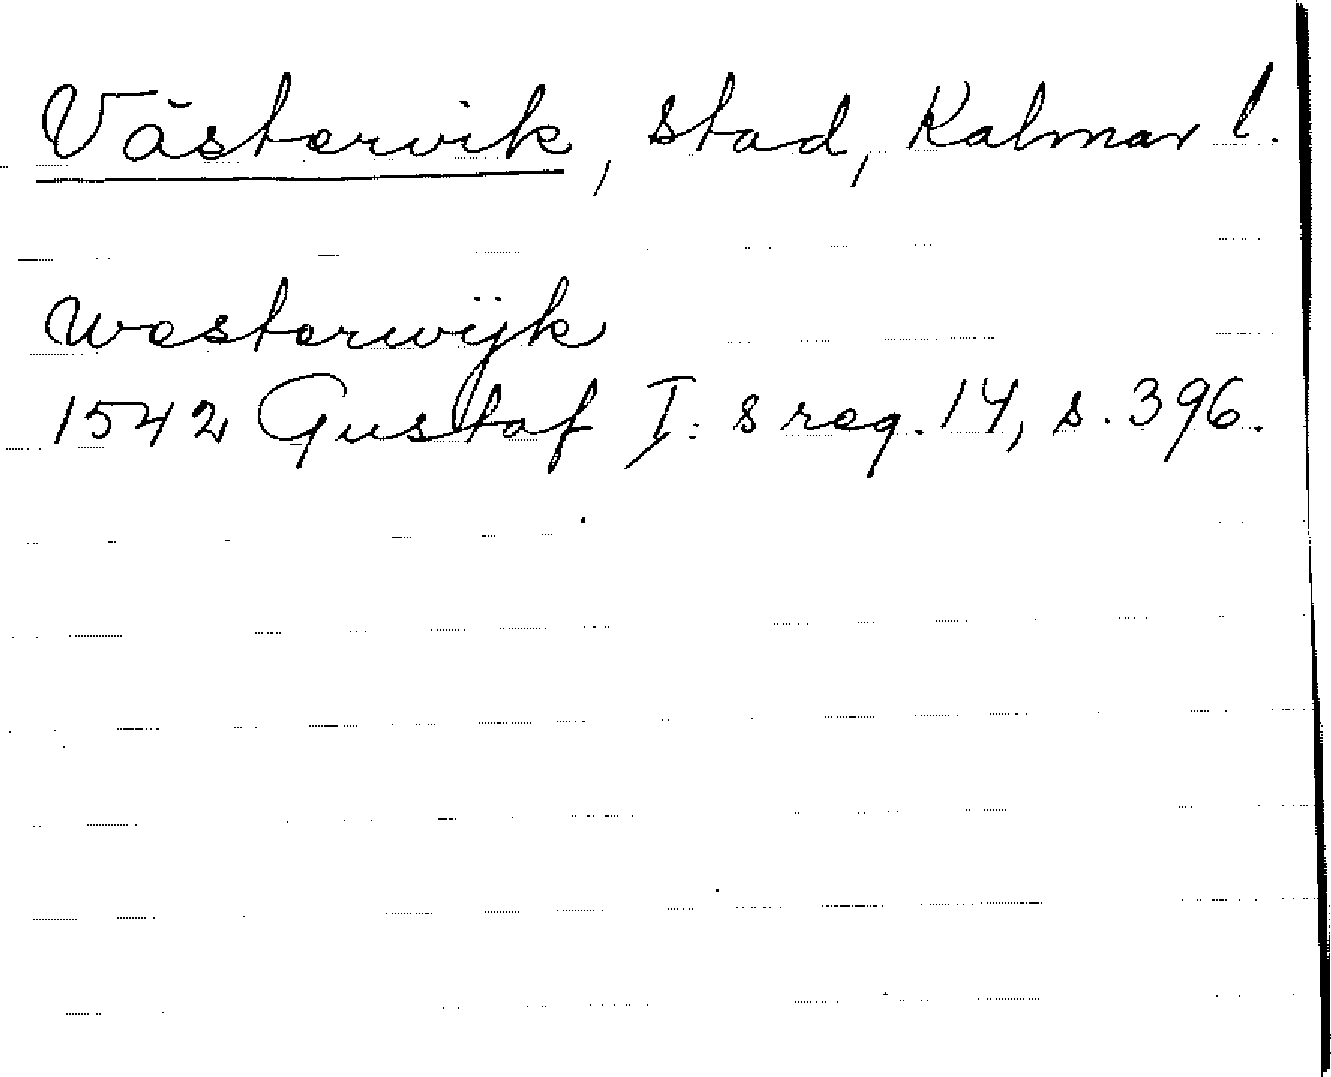 Västervik, stad, Kalmar l.
Westerwijk
1542 Gustaf I:s reg. 14, s. 396.